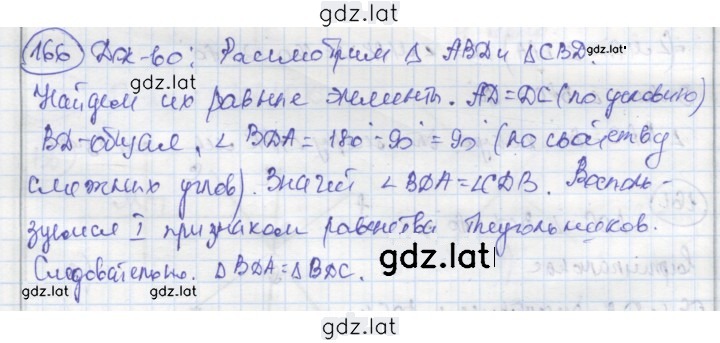 gdz.lat
166 Док-во: Рассмотрим Δ ABD и ΔCBD.
gdz.lat gdz.lat
Найдем их равные элементы. AD=DC (по условию)
BD-общая, ∠BDA = 180°-90° = 90° (по свойству
смежных углов). Значит ∠BDA=∠CDB. Восполь-
зуемся I признаком равенства треугольников.
gdz.lat
Следовательно. ΔBDA=ΔBDC.
gdz.lat gdz.lat
gdz.lat